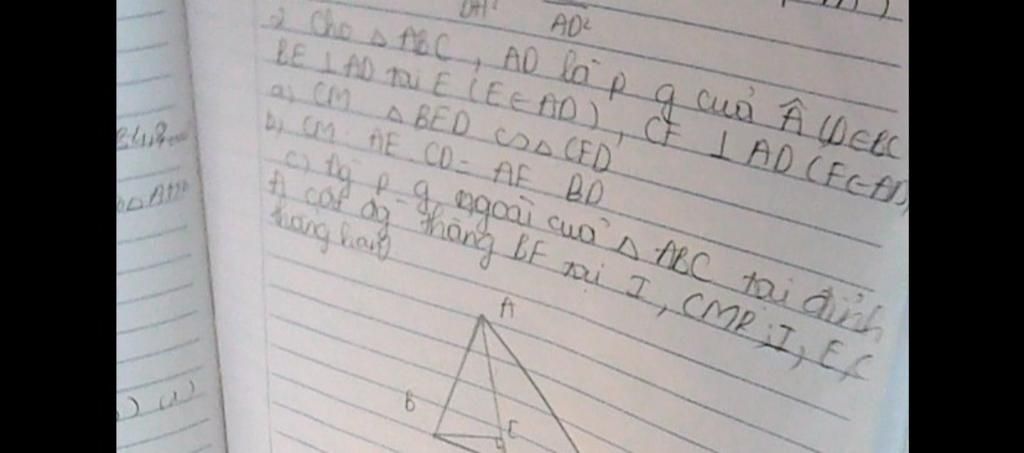 AD²
2) Cho △ ABC, AD là p g cuả Â (D∈BC
BE ⊥ AD tại E (E∈AD), CF ⊥ AD (F∈AD)
a, CM △ BED ∽ △ CFD
b, CM: AE. CD = AF BD
c) đg p g ngoài cuả △ ABC tại đỉnh
A cắt đg thẳng BF tại I, CMR: I, E, C
thẳng hàng
A
B
E